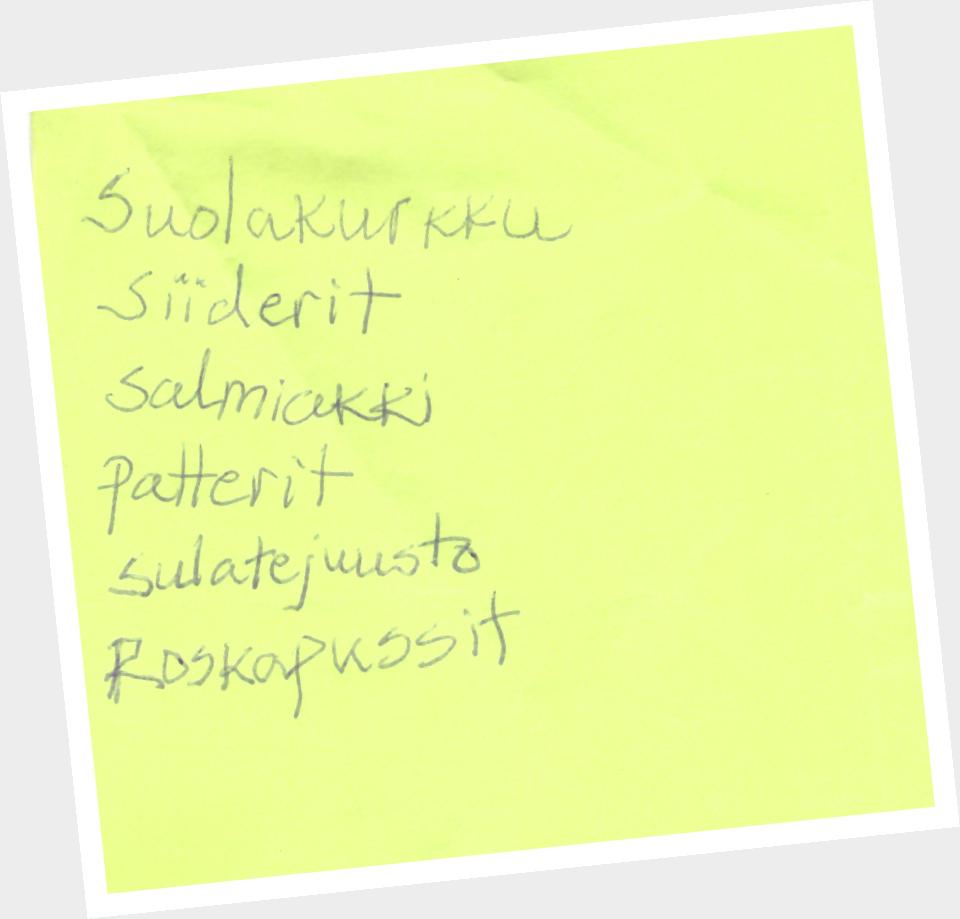 Suolakurkku
Siiderit
Salmiakki
Patterit
sulatejuusto
Roskapussit